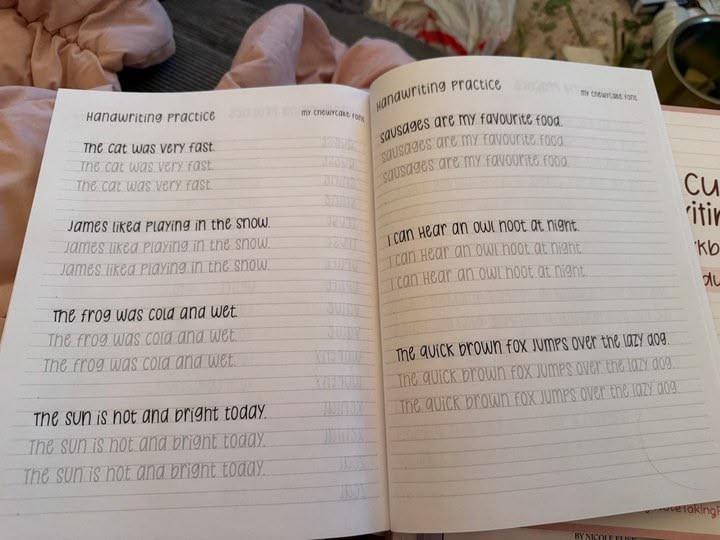 Handwriting Practice
my chewycake font
The cat was very fast.
The cat was very fast.
The cat was very fast.
James liked playing in the snow.
James liked playing in the snow.
James liked playing in the snow.
The frog was cold and wet.
The frog was cold and wet.
The frog was cold and wet.
The sun is hot and bright today.
The sun is hot and bright today.
The sun is hot and bright today.
Handwriting Practice
my chewycake font
Sausages are my favourite food.
Sausages are my favourite food.
Sausages are my favourite food.
I can hear an owl hoot at night.
I can hear an owl hoot at night.
I can hear an owl hoot at night.
The quick brown fox jumps over the lazy dog.
The quick brown fox jumps over the lazy dog.
The quick brown fox jumps over the lazy dog.
BY NICOLE